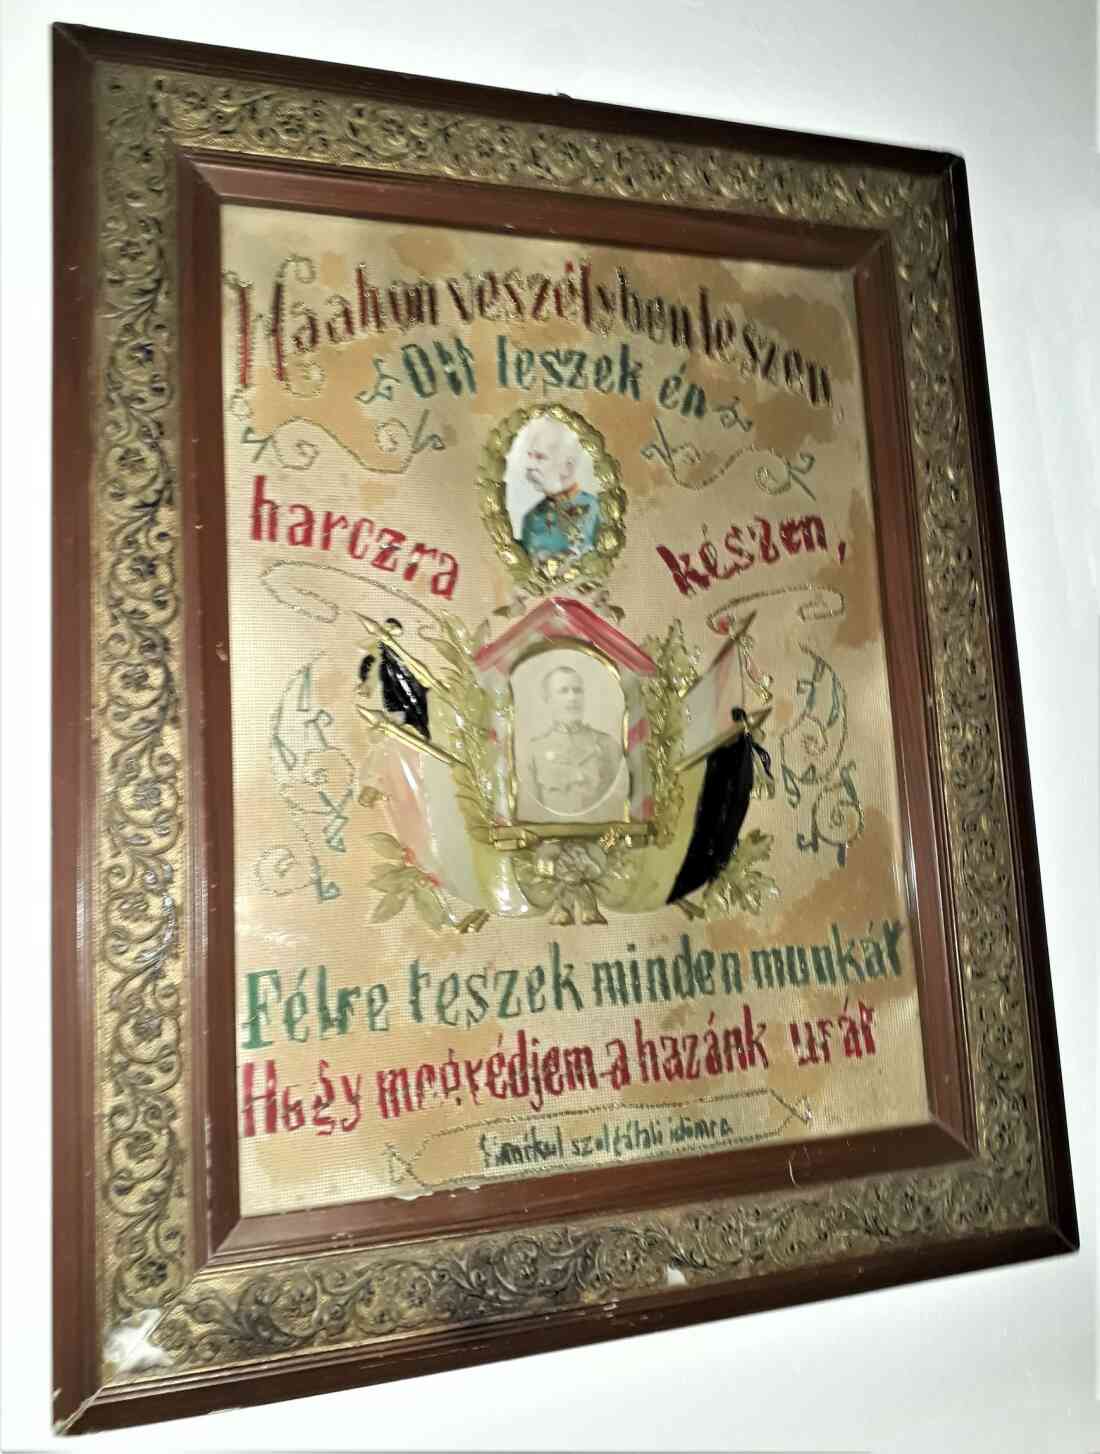 Ha a hon veszélyben leszen,
Ott leszek én
harczra készen,
Félre teszek minden munkát
Hogy megvédjem a hazánk urát
szolgálati idömra